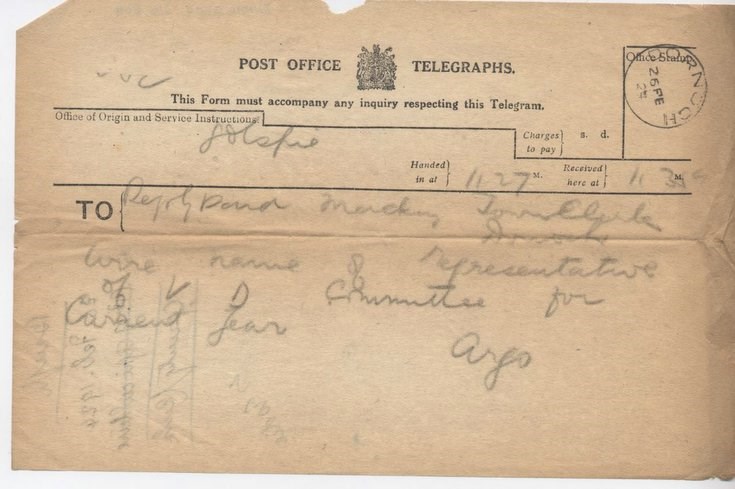 POST OFFICE TELEGRAPHS.
This Form must accompany any inquiry respecting this Telegram.
Office of Origin and Service Instructions
Office Stamp
DORNOCH
26 FE
Golspie
Charges to pay
s. d.
Handed in at
11.27 M.
Received here at
11 35 M.
TO
Reply paid Mackay Town Clerk
Dornoch
Wire name of Representative
V D Committee for
Current Year
Argo